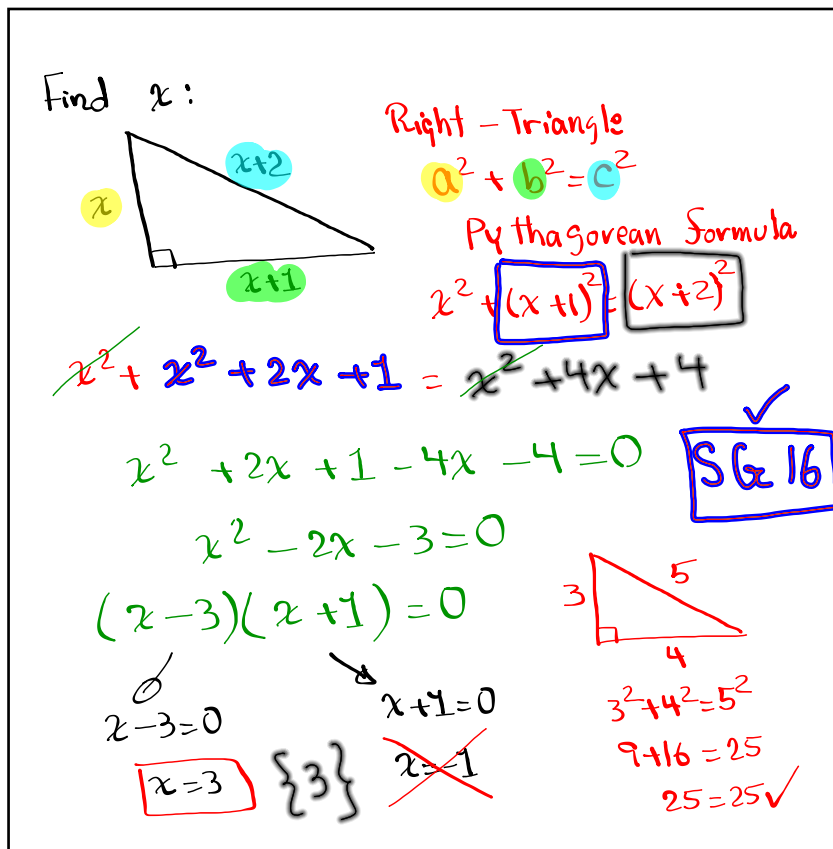 Find x:
x
x+2
x+1
Right - Triangle
a² + b² = c²
Pythagorean formula
x² + (x+1)² = (x+2)²
x² + x² + 2x + 1 = x² + 4x + 4
x² + 2x + 1 - 4x - 4 = 0
SG 16
x² - 2x - 3 = 0
(x-3)(x+1) = 0
x-3=0
x=3
{3}
x+1=0
x=-1
3
5
4
3²+4²=5²
9+16=25
25=25✓